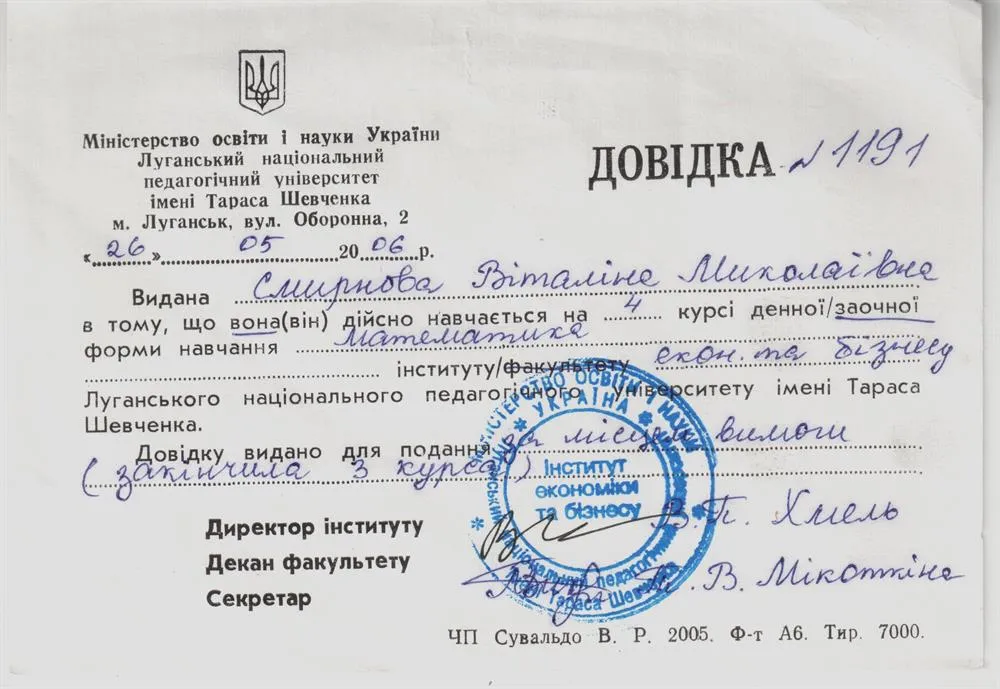 Міністерство освіти і науки України
Луганський національний
педагогічний університет
імені Тараса Шевченка
м. Луганськ, вул. Оборонна, 2
«26» 05 2006 р.
ДОВІДКА № 1191
Видана Смирнова Віталіна Миколаївна
в тому, що вона(він) дійсно навчається на 4 курсі денної/заочної
форми навчання математика
інституту/факультету екон. та бізнесу
Луганського національного педагогічного університету імені Тараса
Шевченка.
Довідку видано для подання за місцем вимоги
(закінчила 3 курса)
МІНІСТЕРСТВО ОСВІТИ І НАУКИ
УКРАЇНА
Інститут
економіки
та бізнесу
національний педагогічний
імені Тараса Шевченка
Директор інституту В.П. Хмель
Декан факультету
Секретар В. Мікоткіна
ЧП Сувальдо В. Р. 2005. Ф-т А6. Тир. 7000.